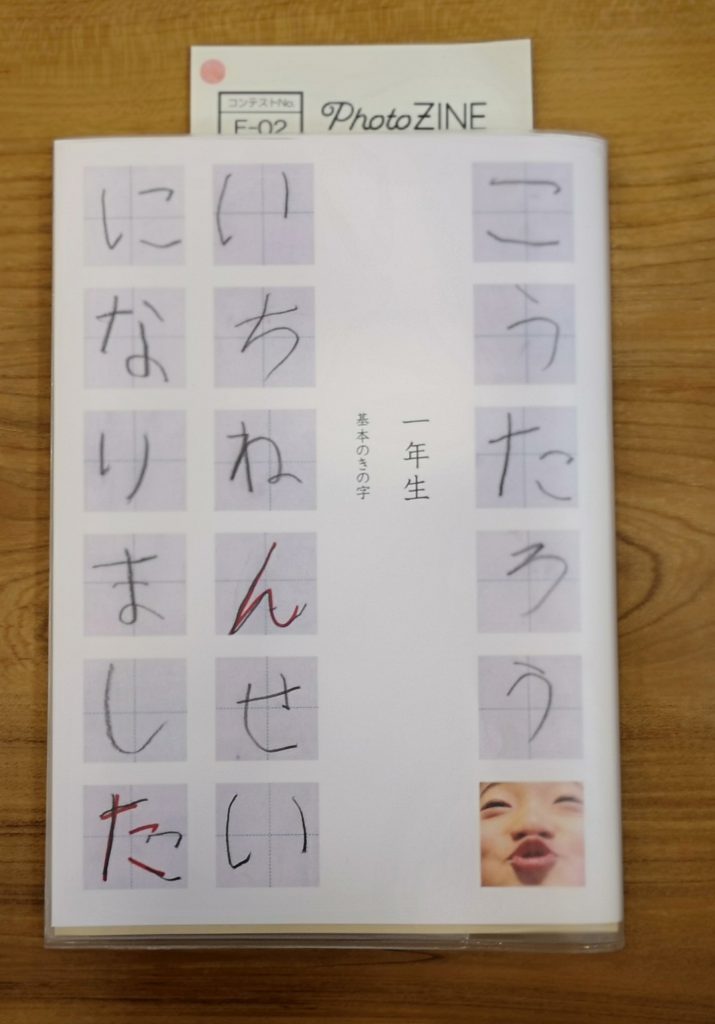 コンテストNo.
F-02
PhotoZINE
こうたろう
一年生
基本のきの字
いちねんせい
になりました